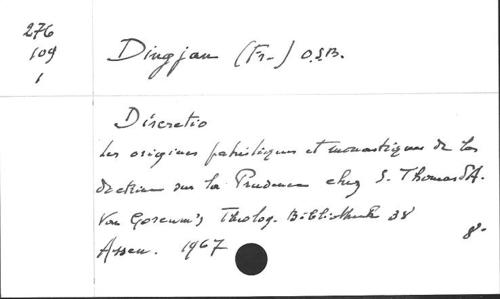 276
109
1
Dingjan (Fr-) O.S.B.
Discretio
Les origines patristiques et monastiques de la
doctrine sur la Prudence chez S. Thomas d'A.
Van Gorcum's Theolog. Bibliotheek 38
Assen. 1967
8°